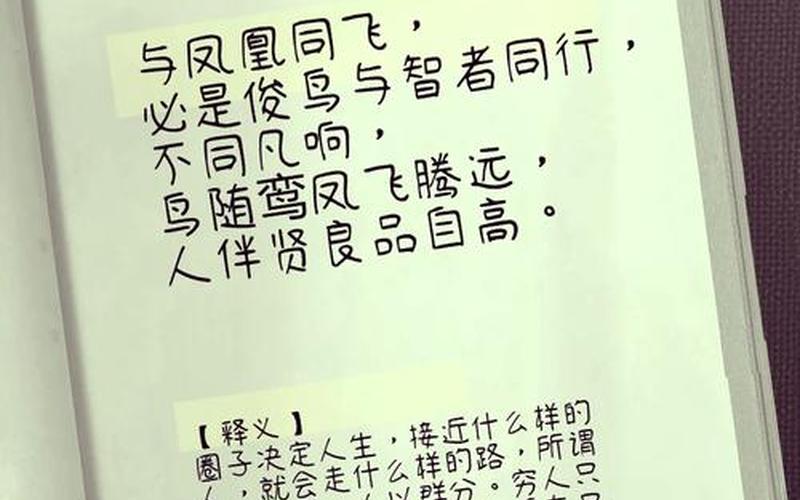 与凤凰同飞，
必是俊鸟与智者同行，
不同凡响，
鸟随鸾凤飞腾远，
人伴贤良品自高。
【释义】
圈子决定人生，接近什么样的
，就会走什么样的路，所谓
以群分。穷人只